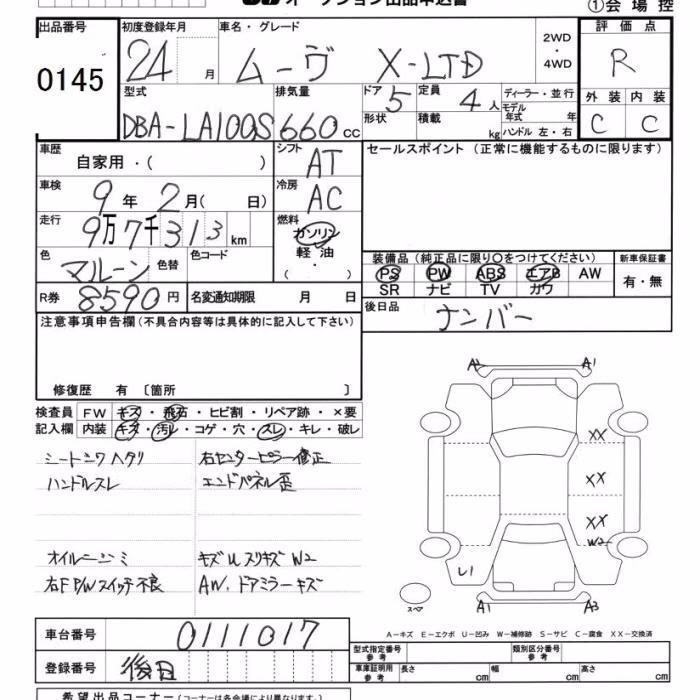 オークション出品申込書
①会場控
出品番号 初度登録年月 車名・グレード 評価点
0145 24 月 ムーヴ X-LTD 2WD ・ 4WD R
型式 排気量 ドア 5 定員 4 人 ディーラー・並行 外装 内装
DBA-LA100S 660 cc 形状 積載 kg モデル年式 年 ハンドル 左・右 C C
車歴 シフト セールスポイント (正常に機能するものに限ります)
自家用・( ) AT
車検 9 年 2 月( 日) 冷房 AC
走行 9万7千313 km 燃料 ガソリン
軽油
・( )
色 マルーン 色替 色コード
装備品 (純正品に限り〇をつけてください) 新車保証書
PS PW ABS エアB AW 有・無
SR ナビ TV カワ
R券 8590 円 名変通知期限 月 日
後日品 ナンバー
注意事項申告欄(不具合内容等は具体的に記入して下さい)
修復歴 有 〔箇所 〕
検査員 FW キズ・飛石・ヒビ割・リペア跡・×要
記入欄 内装 キズ・汚レ・コゲ・穴・スレ・キレ・破レ
シートシワヘタリ 右センターピラー修正
ハンドルスレ エンドパネル歪
オイルニジミ キズUスリキズW2
右F P/Wスイッチ不良 AW、ドアミラーキズ
A2 A1
XX
XX
XX
W2
U1
スペア A1 A3
A−キズ E−エクボ U−凹み W−補修跡 S−サビ C−腐食 XX−交換済
車台番号 0111017
登録番号 後日
型式指定番号 参考 類別区分番号 参考
車庫証明用 参考 長さ cm 幅 cm 高さ cm
希望出品コーナー(コーナーは各会場により異なります。)